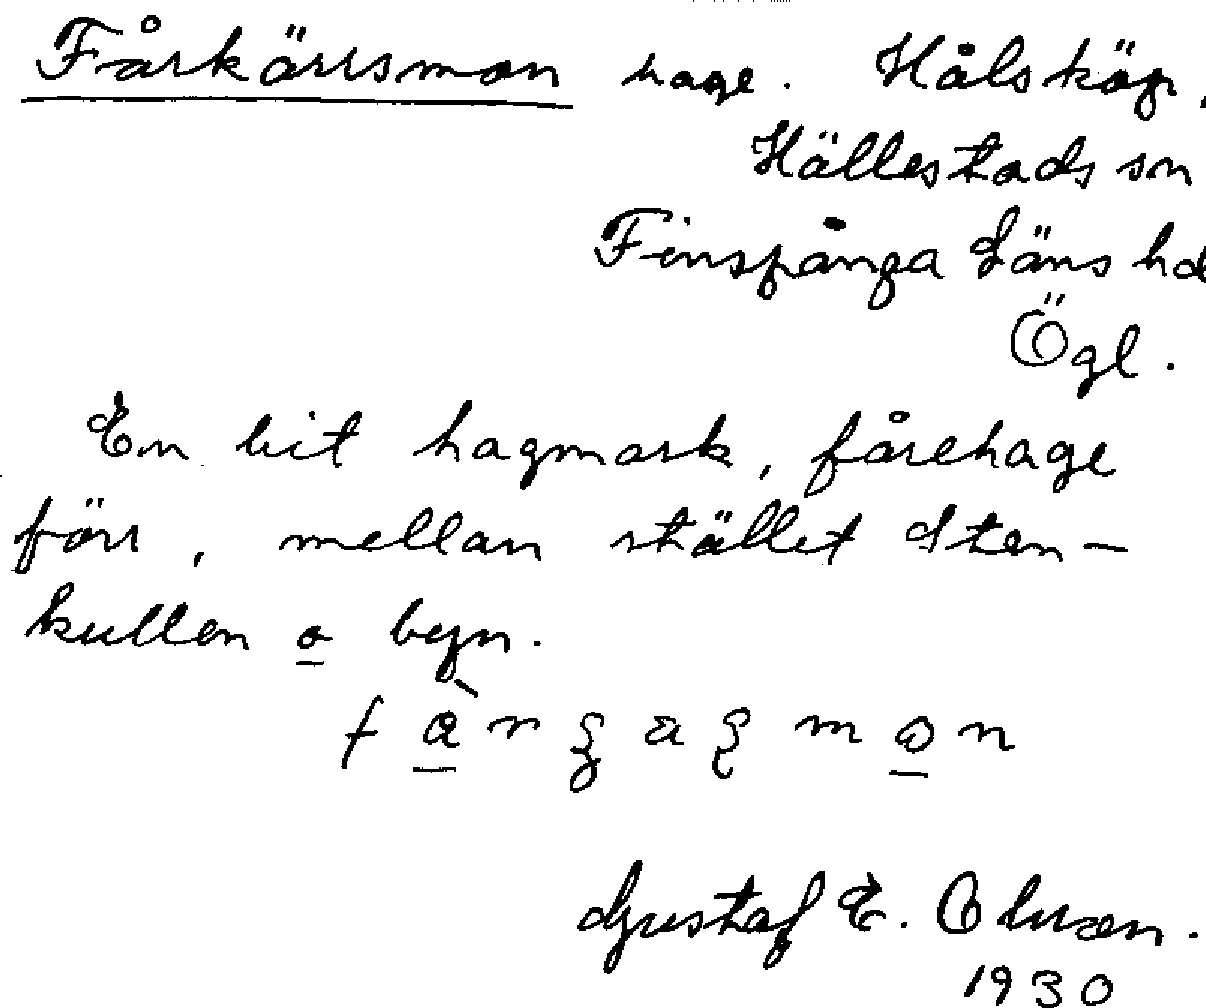 Fårkärrsmon hage. Hålsköp,
Hällestads sn
Finspånga Läns hd
Ögl.
En bit hagmark, fårehage
förr, mellan stället Sten-
kullen o byn.
Gustaf E. Olsson.
1930